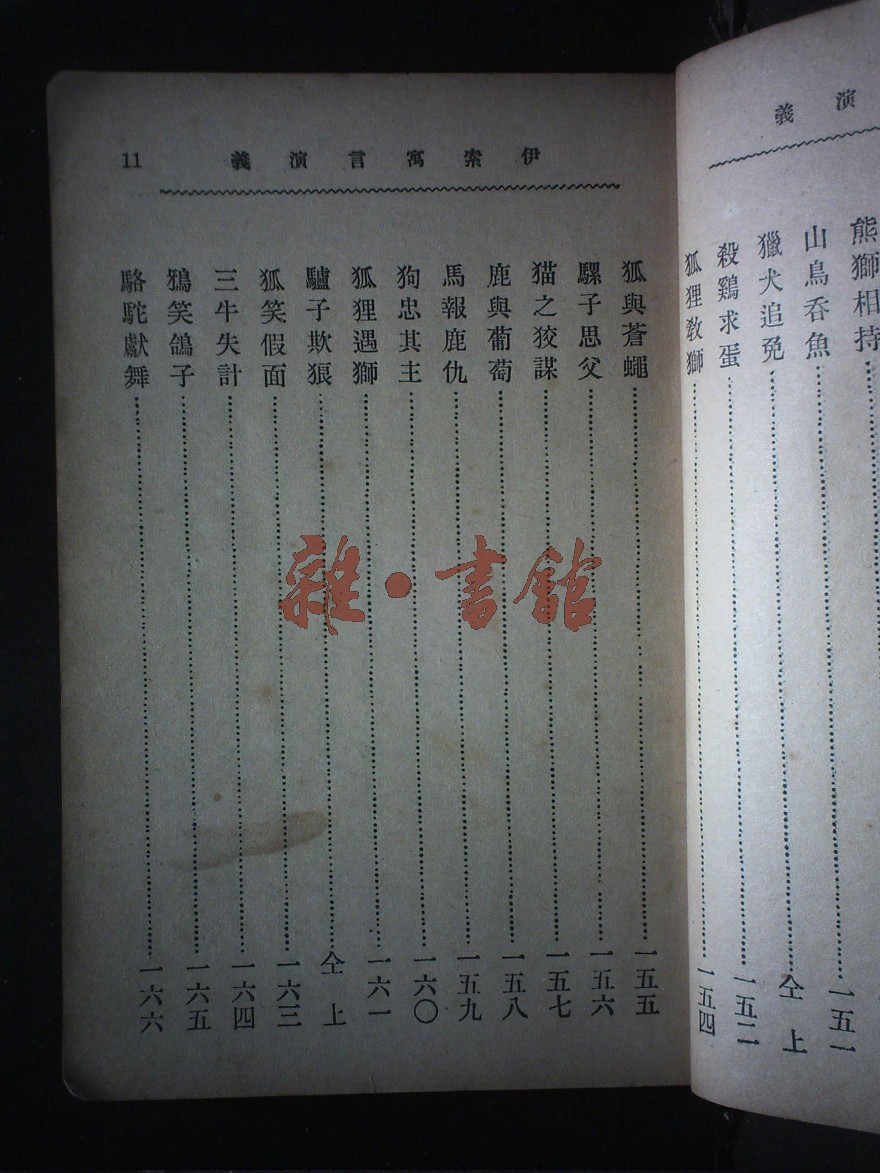 演義
熊獅相持
山鳥吞魚……一五一
獵犬追免……仝上
殺鷄求蛋……一五二
狐狸教獅……一五四
伊索寓言演義 11
狐與蒼蠅……一五五
騾子思父……一五六
猫之狡謀……一五七
鹿與葡萄……一五八
馬報鹿仇……一五九
狗忠其主……一六〇
狐狸遇獅……一六一
驢子欺狼……仝上
狐笑假面……一六三
三牛失計……一六四
鴉笑鴿子……一六五
駱駝獻舞……一六六
雜·書館